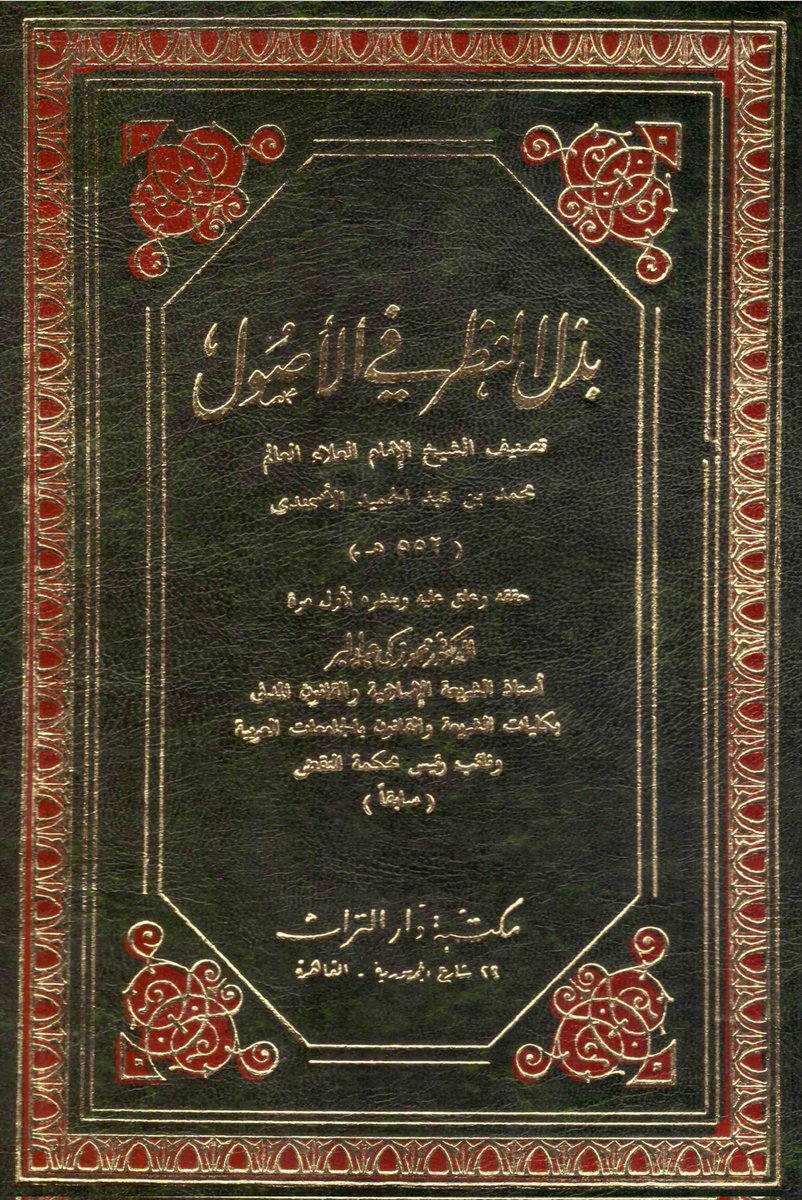 بذل النظر في الأصول
تصنيف الشيخ الإمام العلاء العالم
محمد بن عبد الحميد الأسمندي
( ٥٥٢ هـ )
حققه وعلق عليه وينشره لأول مرة
الدكتور محمد زكي عبد البر
أستاذ الشريعة الإسلامية والقانون المدني
بكليات الشريعة والقانون بالجامعات العربية
ونائب رئيس محكمة النقض
( سابقاً )
مكتبة دار التراث
٢٢ شارع الجمهورية - القاهرة